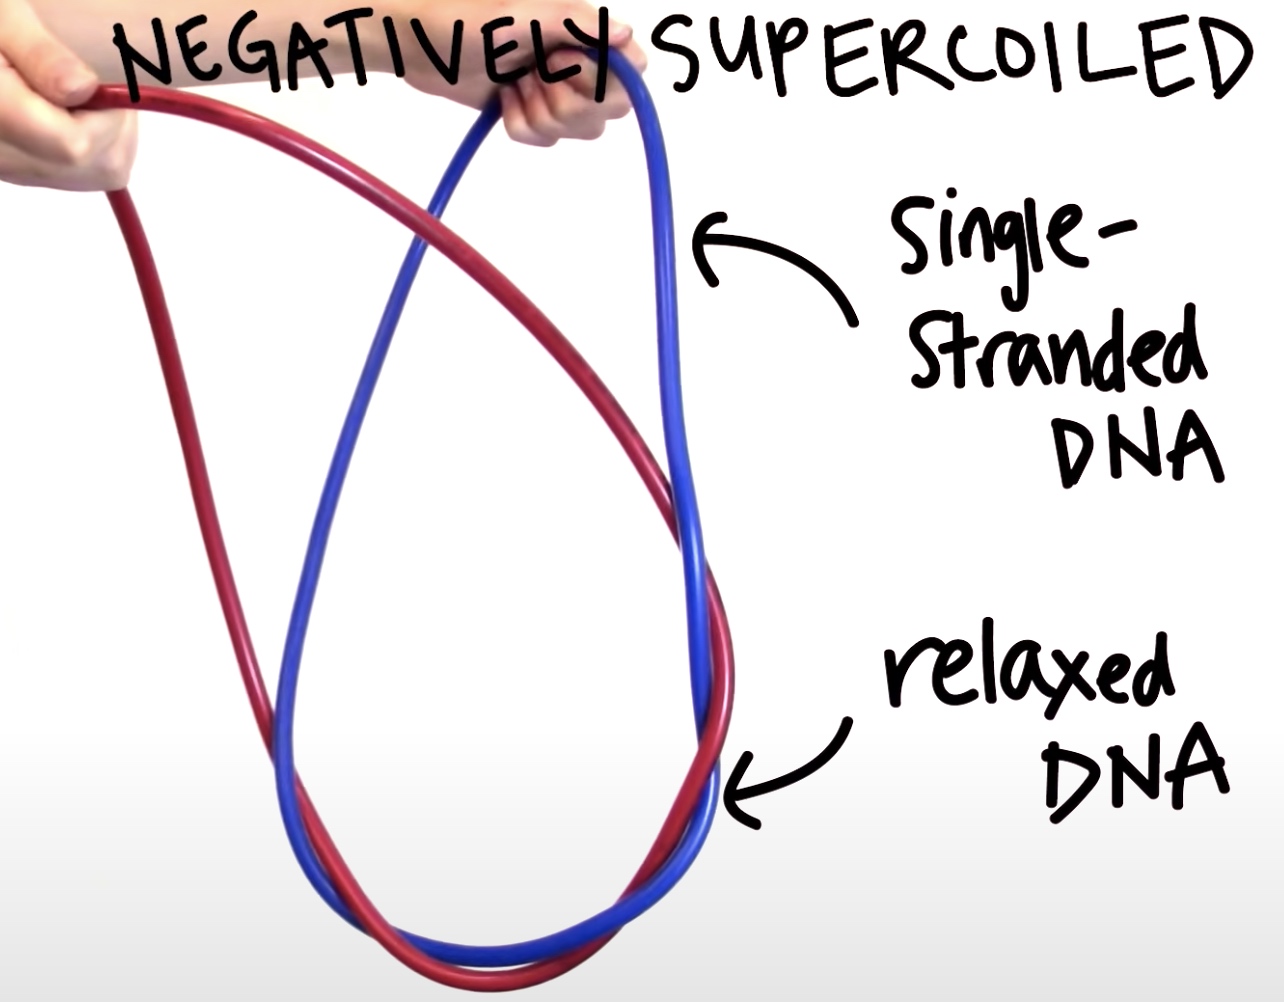 NEGATIVELY SUPERCOILED
Single-
Stranded
DNA
relaxed
DNA